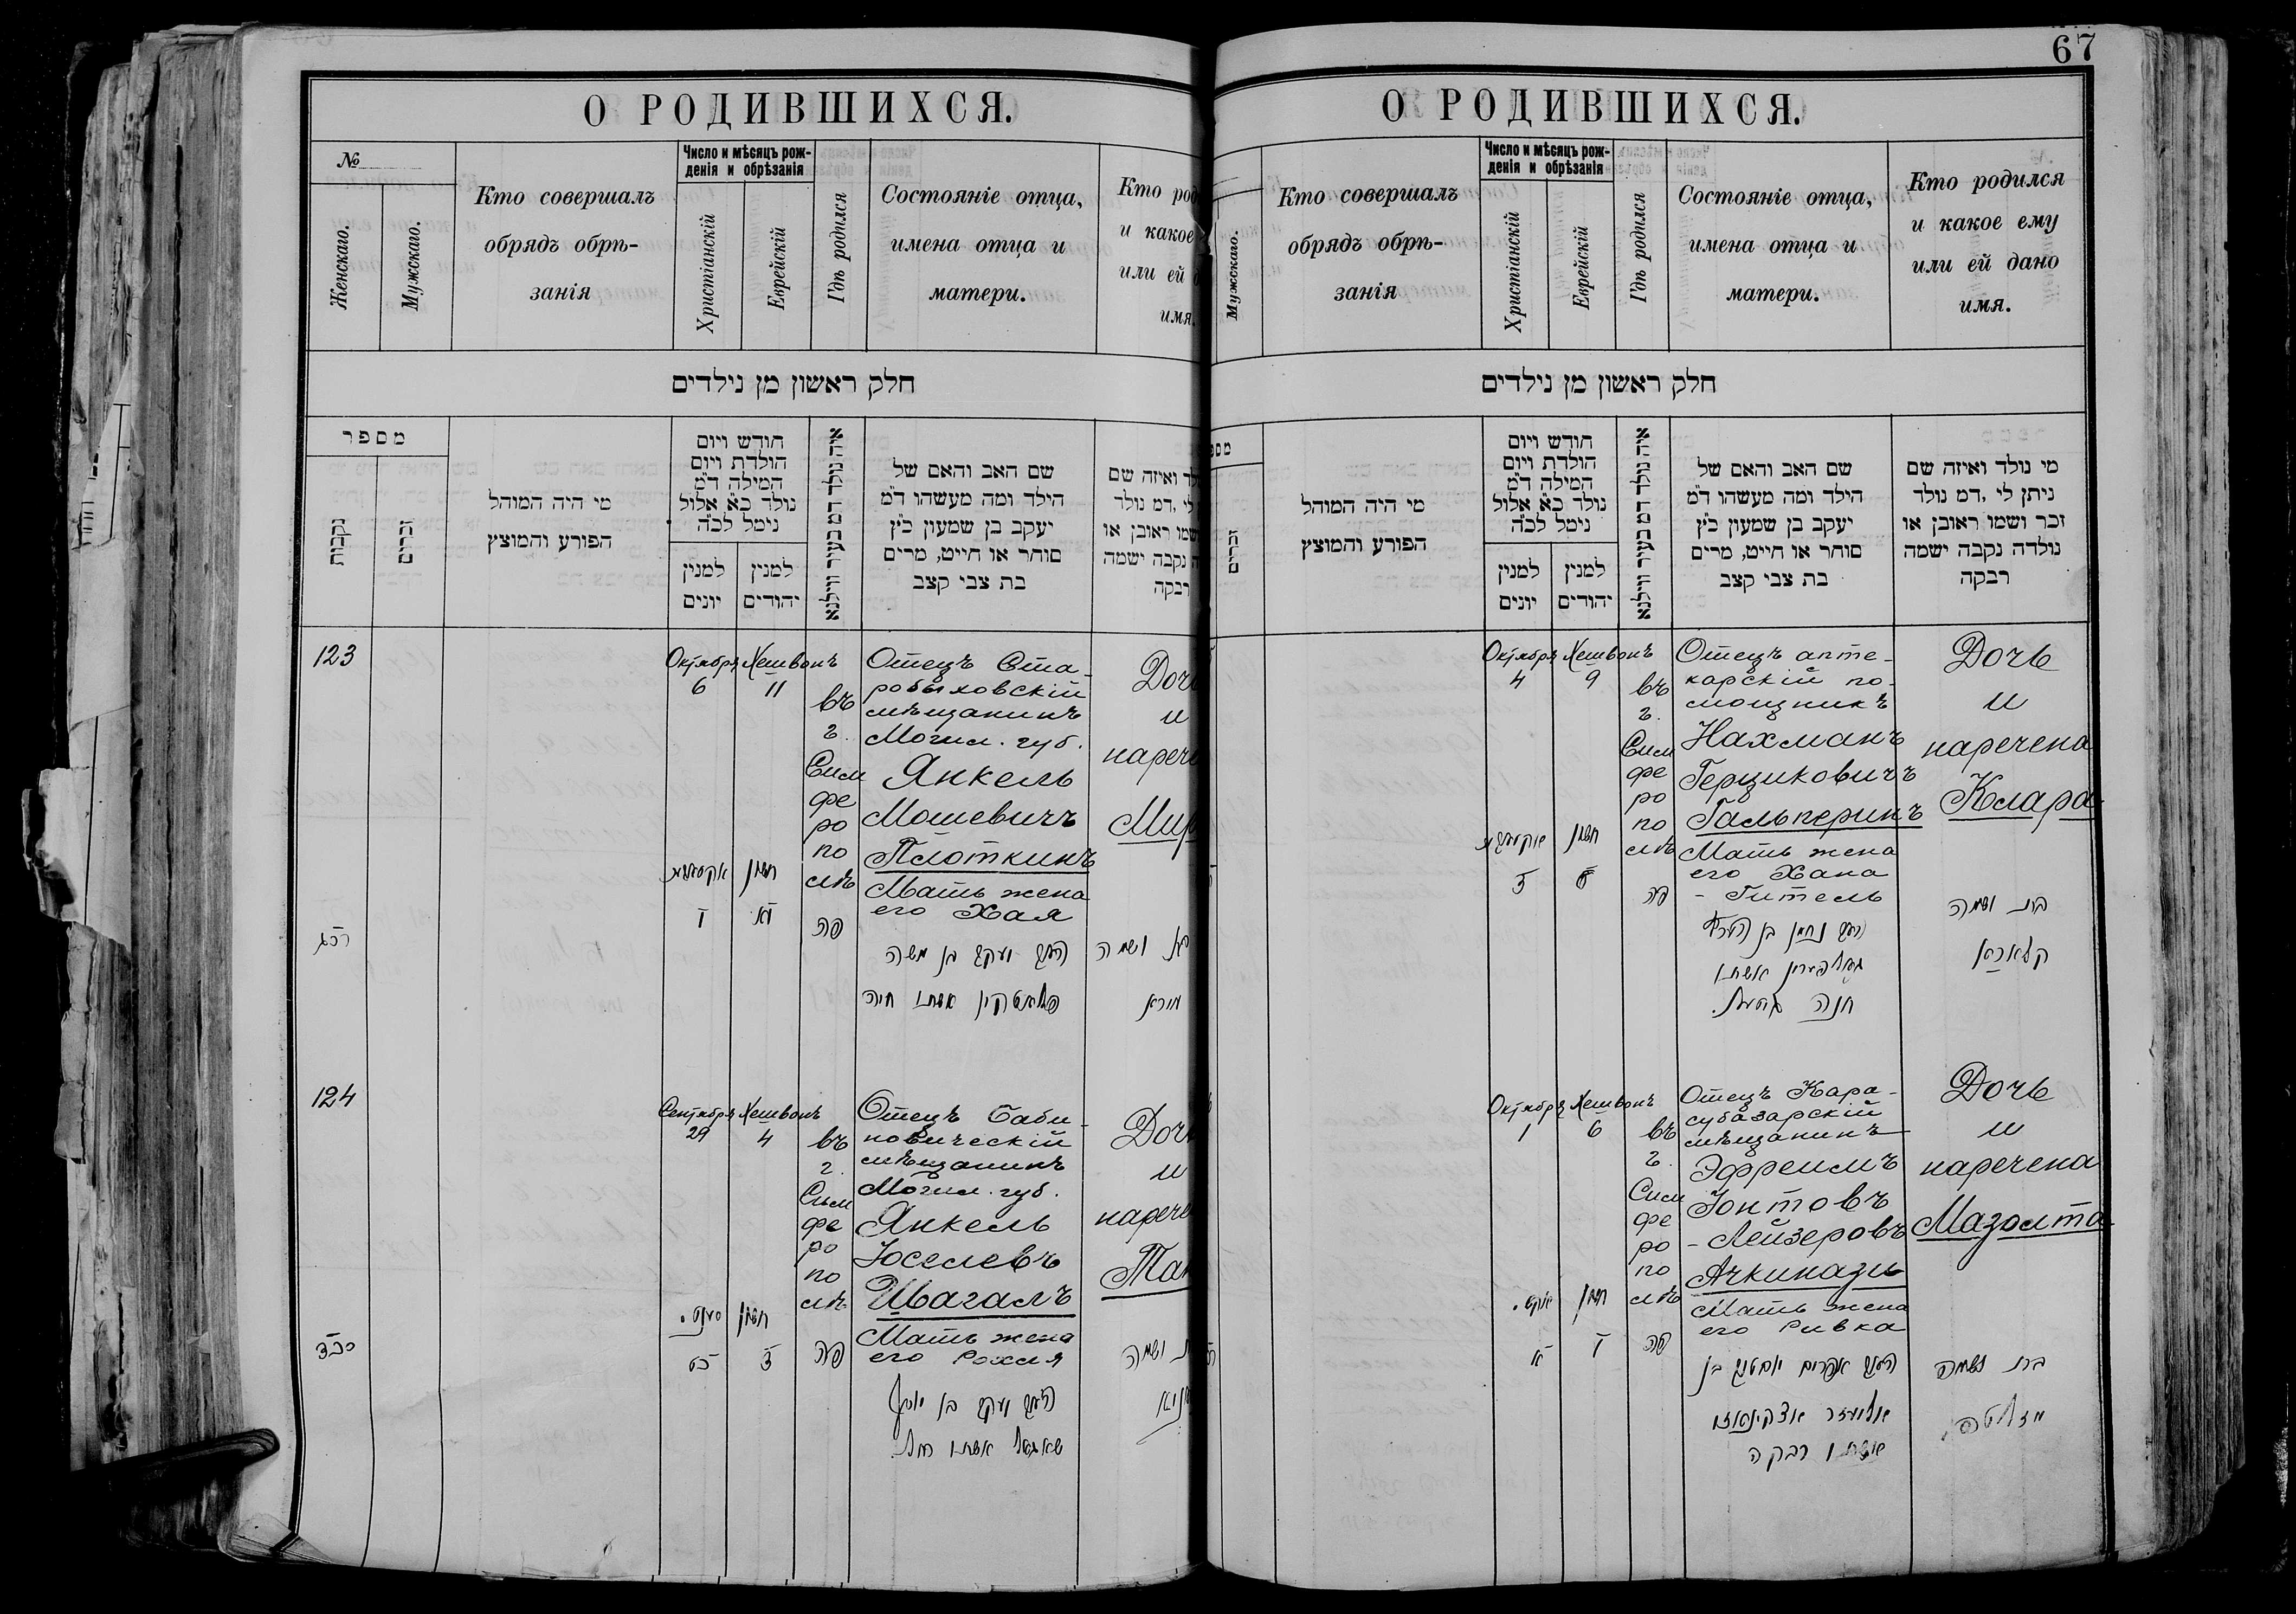 О РОДИВШИХСЯ.
№
Женскаго.
Мужскаго.
Кто совершалъ
обрядъ обрѣ-
занія
Число и мѣсяцъ рож-
денія и обрѣзанія
Христіанскій
Еврейскій
Гдѣ родился
Состояніе отца,
имена отца и
матери.
Кто род
и какое
или ей
имя.
חלק ראשון מן נילדים
מספר
נקבות
זכרים
מי היה המוהל
הפורע והמוצץ
חודש ויום
הולדת ויום
המילה ד"מ
נולד כ"א אלול
נימל לכ"ה
למנין
יונים
למנין
יהודים
איה נולד דמ בעיר ווילנא
שם האב והאם של
הילד ומה מעשהו ד"מ
יעקב בן שמעון כ"ץ
סוחר או חייט, מרים
בת צבי קצב
לד ואיזה שם
לי ,דמ נולד
שמו ראובן או
ה נקבה ישמה
רבקה
123
Октября
6
Хешвонъ
11
въ
г.
Сим
фе
ро
по
лѣ
Отецъ Ста-
робыховскій
мѣщанинъ
Могил. губ.
Янкель
Мошевичъ
Плоткинъ
Мать жена
его Хая
Доч
и
нарече
חשון
יא
פה
יעקב בן משה
פלאטקין אשתו חיה
ושמה
מירא
124
Сентября
29
Хешвонъ
4
въ
г.
Сим
фе
ро
по
лѣ
Отецъ Баби-
новическій
мѣщанинъ
Могил. губ.
Янкель
Юселевъ
Шагалъ
Мать жена
его Рохля
Доч
и
нарече
חשון
ד
כט
פה
יעקב בן יוסף
שאגאל אשתו רחל
ושמה
67
О РОДИВШИХСЯ.
Мужскаго.
Кто совершалъ
обрядъ обрѣ-
занія
Число и мѣсяцъ рож-
денія и обрѣзанія
Христіанскій
Еврейскій
Гдѣ родился
Состояніе отца,
имена отца и
матери.
Кто родился
и какое ему
или ей дано
имя.
חלק ראשון מן נילדים
זכרים
מי היה המוהל
הפורע והמוצץ
חודש ויום
הולדת ויום
המילה ד"מ
נולד כ"א אלול
נימל לכ"ה
למנין
יונים
למנין
יהודים
איה נולד דמ בעיר ווילנא
שם האב והאם של
הילד ומה מעשהו ד"מ
יעקב בן שמעון כ"ץ
סוחר או חייט, מרים
בת צבי קצב
מי נולד ואיזה שם
ניתן לי ,דמ נולד
זכר ושמו ראובן או
נולדה נקבה ישמה
רבקה
Октября
4
Хешвонъ
9
въ
г.
Сим
фе
ро
по
лѣ
Отецъ апте-
карскій по-
мощникъ
Нахманъ
Герциковичъ
Гальперинъ
Мать жена
его Хана
- Гитель
Дочь
и
наречена
Клара
חשון
ד
ט
פה
נחמן בן
גאלפערין אשתו
חנה גיטעל.
בת ושמה
קלארא
Октября
1
Хешвонъ
6
въ
г.
Сим
фе
ро
по
лѣ
Отецъ Кара-
субазарскій
мѣщанинъ
Эфреимъ
Іонтовъ
- Лейзеровъ
Ачкинази
Мать жена
его Ривка
Дочь
и
наречена
Мазолто
חשון
א
ו
פה
אפרים יאמטוב בן
אליעזר אצקינאזי
אשתו רבקה
בת ושמה